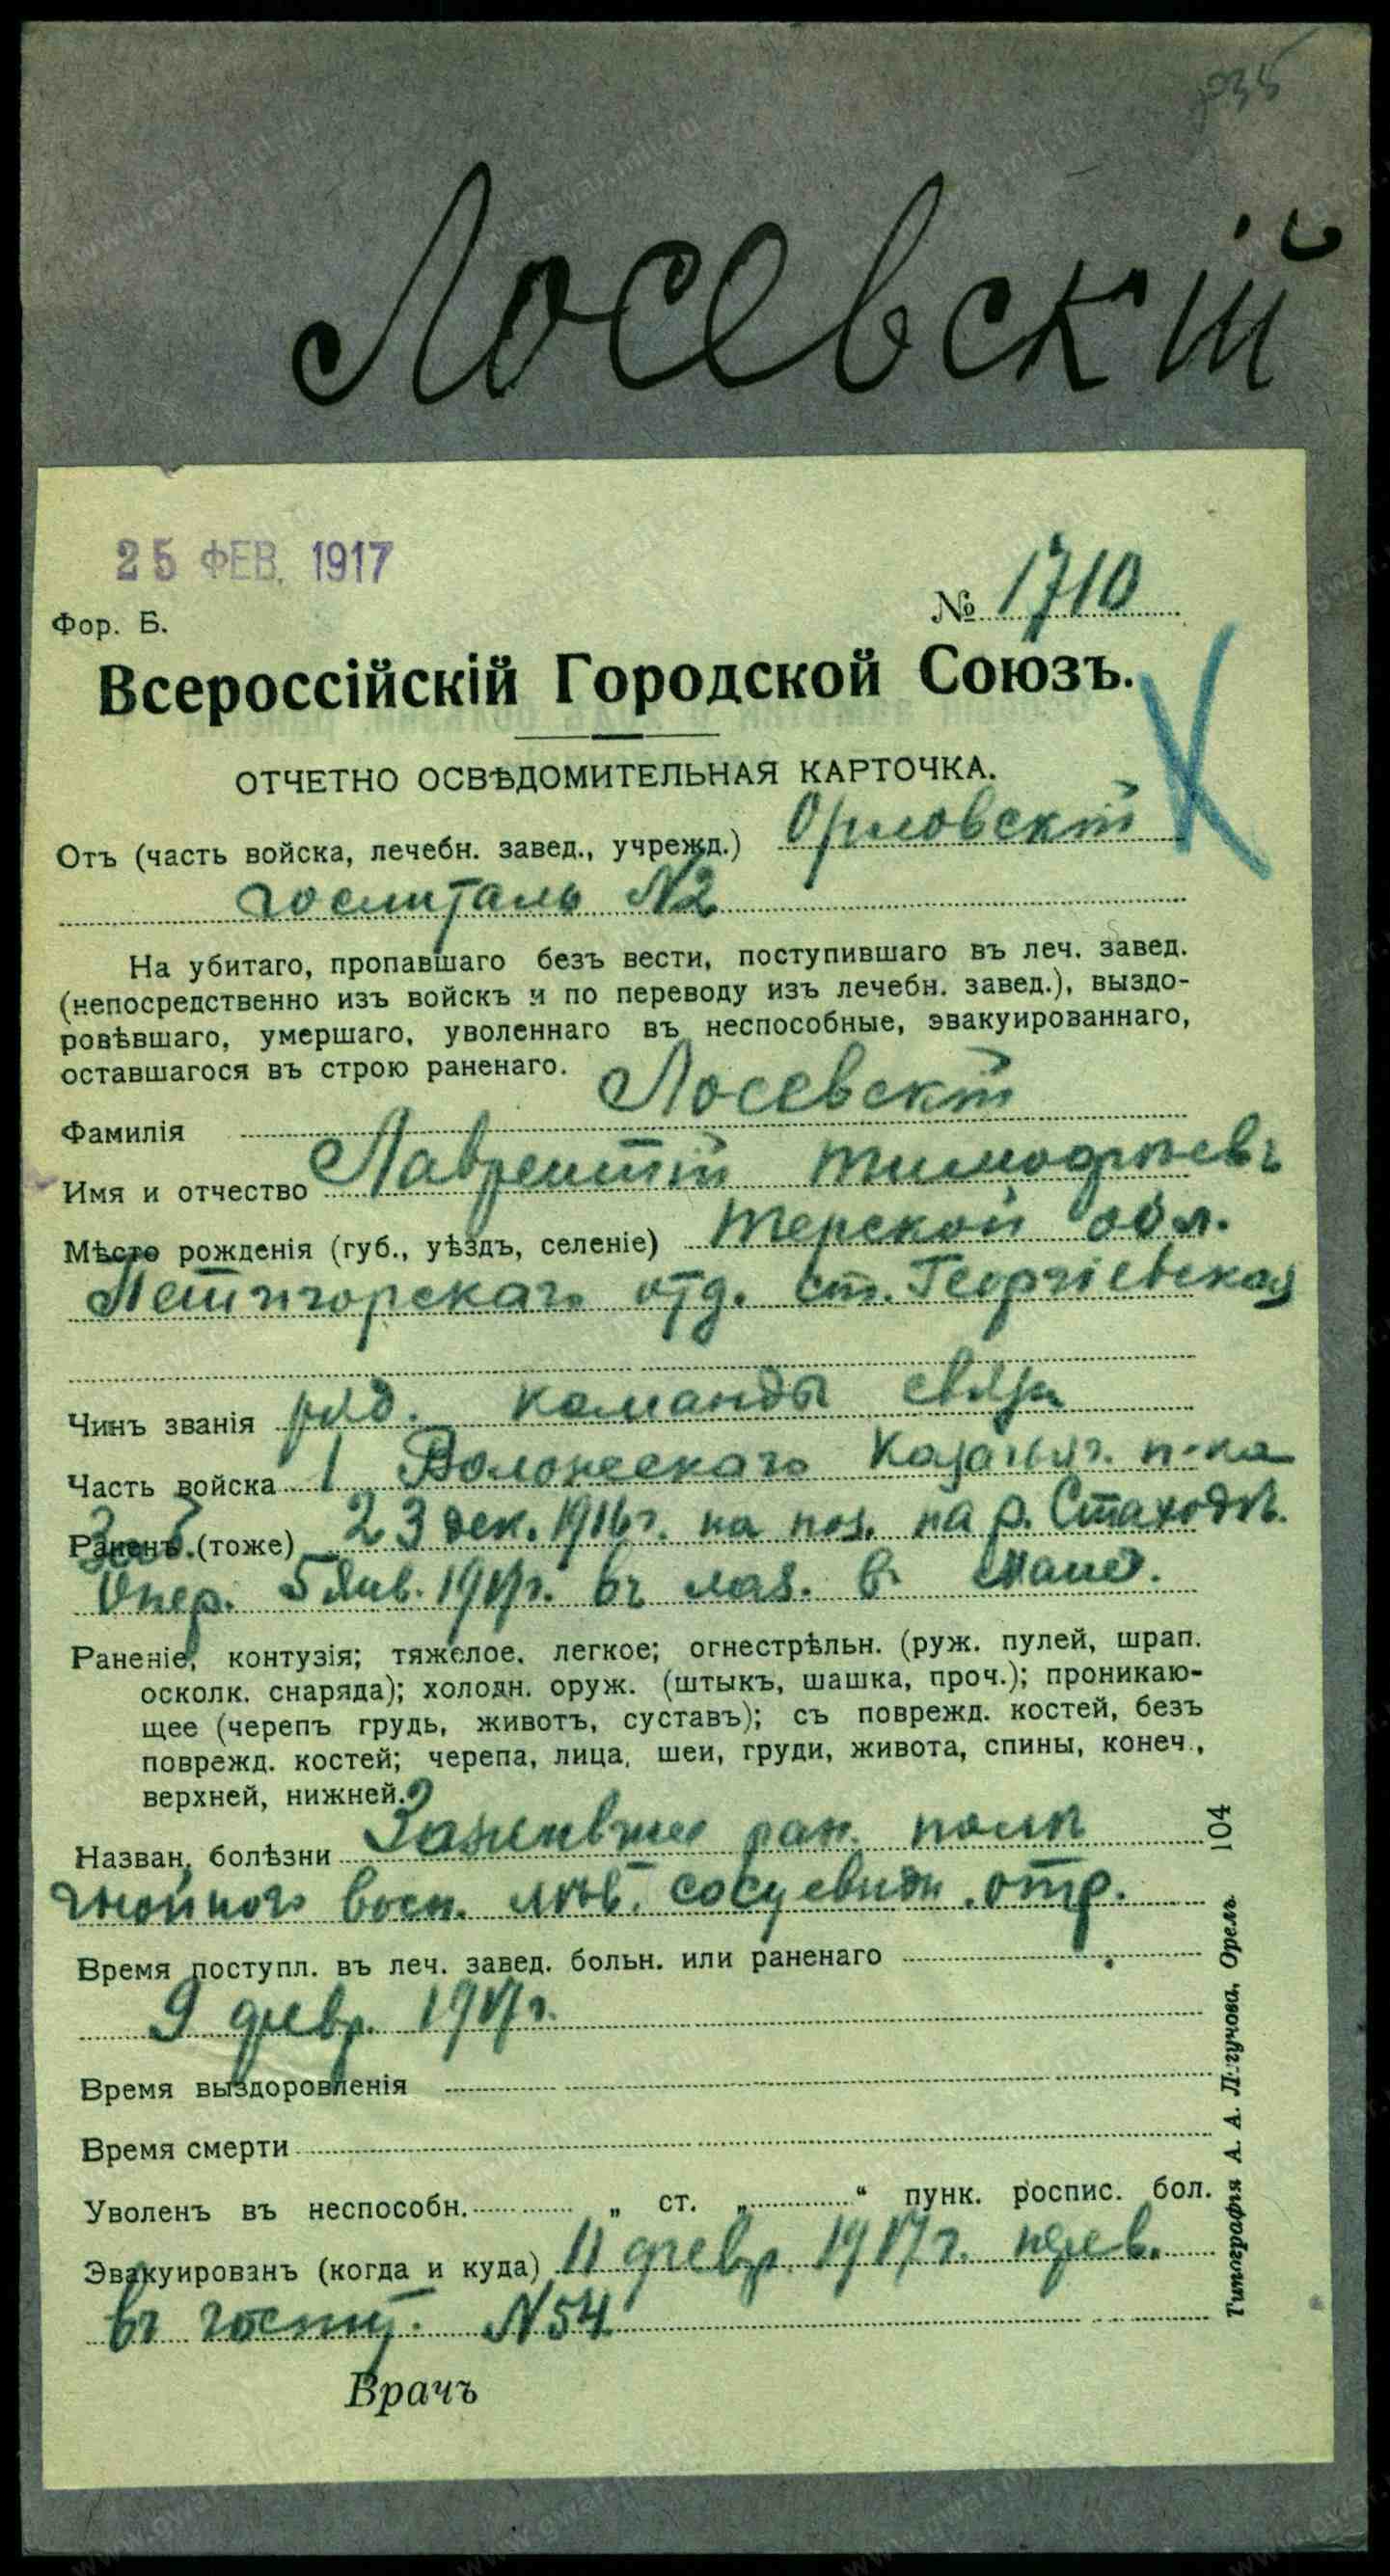 Лосевскій
25 ФЕВ. 1917
Фор. Б.
№ 1710
Всероссійскій Городской Союзъ.
ОТЧЕТНО ОСВѢДОМИТЕЛЬНАЯ КАРТОЧКА.
Отъ (часть войска, лечебн. завед., учрежд.) Орловскій
госпиталь №2
На убитаго, пропавшаго безъ вести, поступившаго въ леч. завед.
(непосредственно изъ войскъ и по переводу изъ лечебн. завед.), выздо-
ровѣвшаго, умершаго, уволеннаго въ неспособные, эвакуированнаго,
оставшагося въ строю раненаго.
Фамилія Лосевскій
Имя и отчество Лаврентій Тимофѣевъ
Мѣсто рожденія (губ., уѣздъ, селеніе) Терской обл.
отд. ст. Георгіевская
Чинъ званія ряд. команды связи
Часть войска 1 Волонескаго Казачьяг. п-ка
Раненъ (тоже) 23 дек. 1916г. на поз. на р. Стоходѣ.
Опер. 5 Янв. 1917г. въ лаз. в.
Раненіе, контузія; тяжелое, легкое; огнестрѣльн. (руж. пулей, шрап.
осколк. снаряда); холодн. оруж. (штыкъ, шашка, проч.); проникаю-
щее (черепъ грудь, животъ, суставъ); съ поврежд. костей, безъ
поврежд. костей; черепа, лица, шеи, груди, живота, спины, конеч.,
верхней, нижней.
Назван. болѣзни Зажившая ран. послѣ
гнойного восп. лѣв. сосцевидн. отр.
Время поступл. въ леч. завед. больн. или раненаго
9 февр. 1917г.
Время выздоровленія
Время смерти
Уволенъ въ неспособн. „ ст. „ “ пунк. роспис. бол.
Эвакуированъ (когда и куда) 11 февр. 1917г. перев.
въ госпит. №54
Врачъ
104
Типографія А. А. Логучова, Орелъ
www.gwar.mil.ru